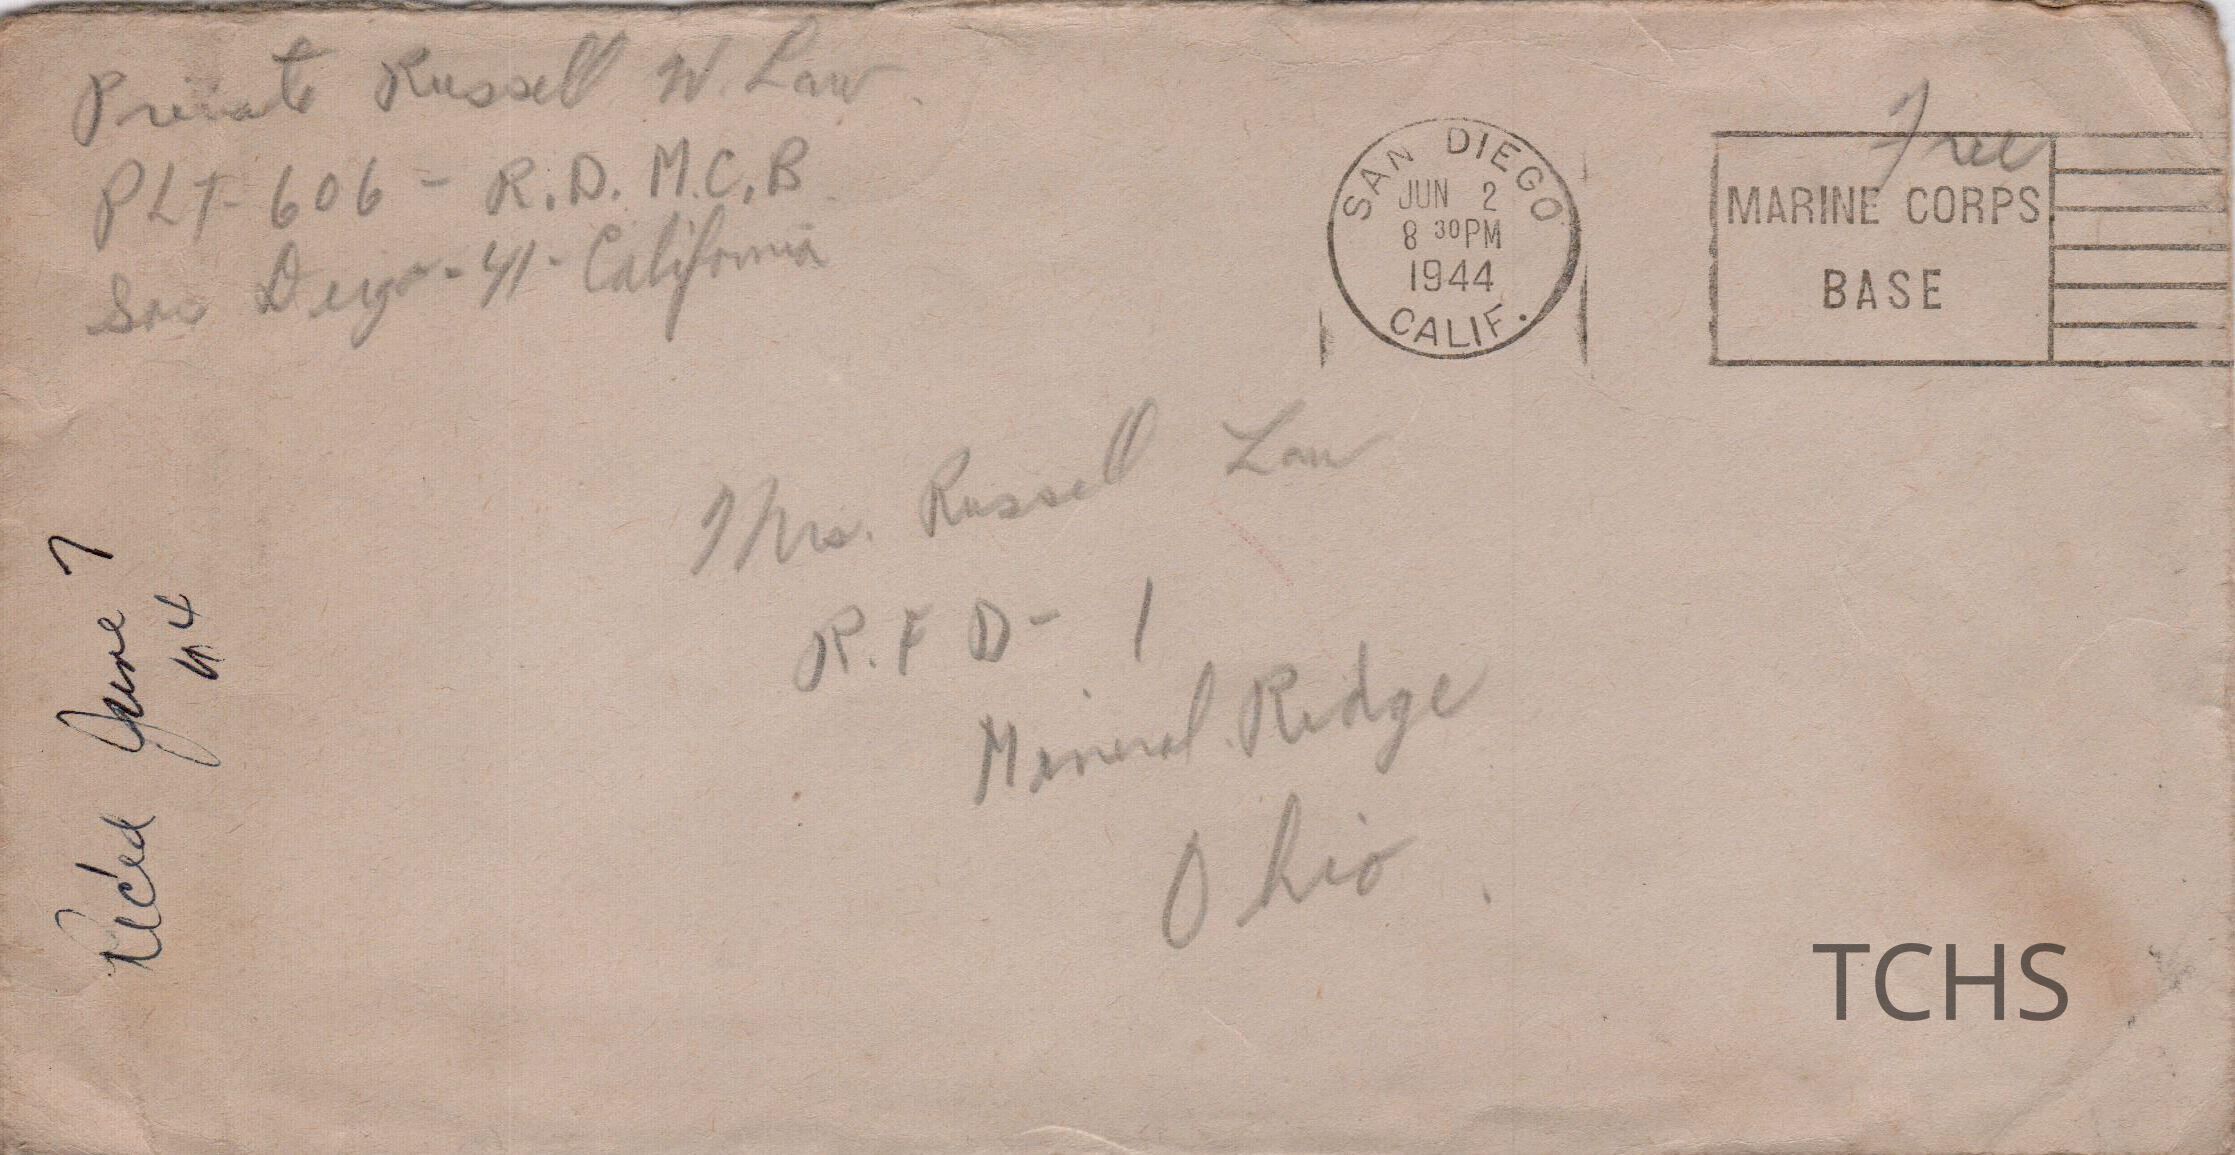 Private Russell W. Law.
PLT-606 - R.D. M.C.B.
San Deigo - 41 - California
Free
SAN DIEGO
JUN 2
8 30PM
1944
CALIF.
MARINE CORPS
BASE
Mrs. Russell Law
R.F D- 1
Mineral Ridge
Ohio
Rec'ed June 7
44
TCHS